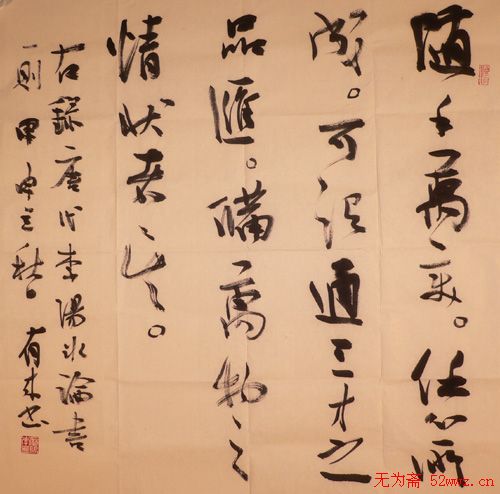 随手萬变。任心所
成。可謂通三才之
品匯。備萬物之
情狀者矣。
右錄唐代李陽冰論書
一則 甲申立秋日 有来书
无为斋 52wwz.cn